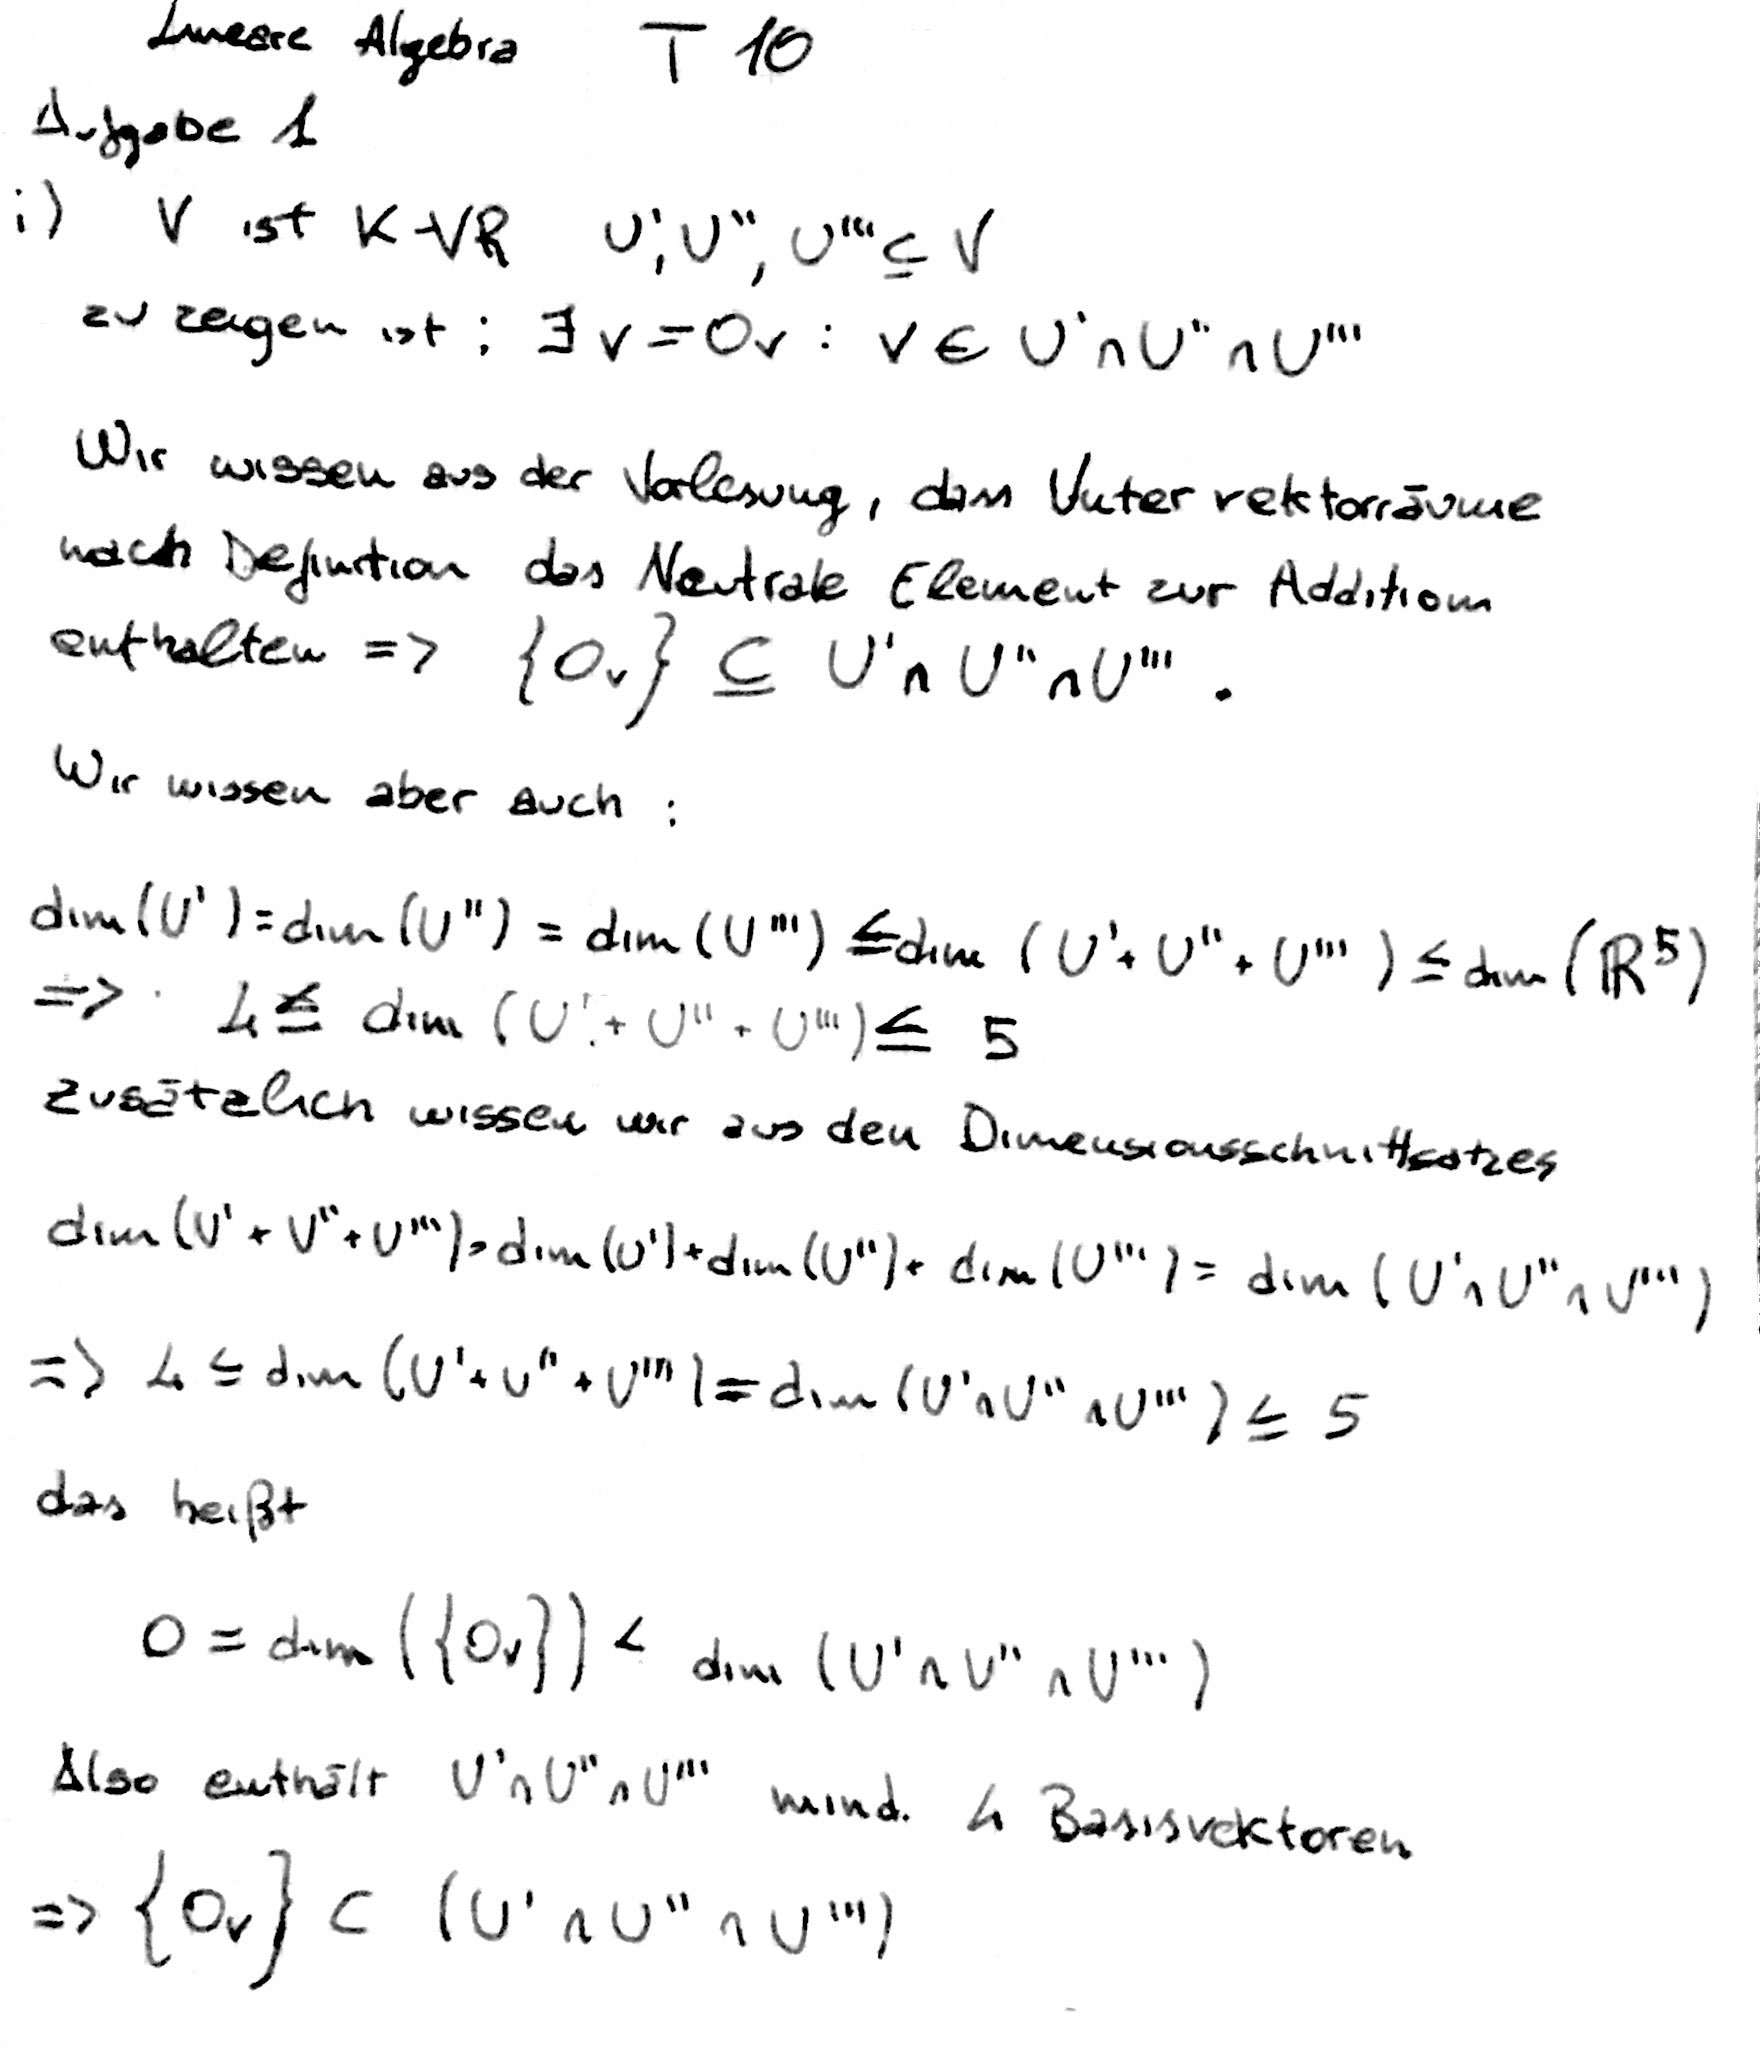 Lineare Algebra T 10
Aufgabe 1
i) V ist K-VR U', U'', U''' ⊆ V
zu zeigen ist : ∃ v = 0v : v ∈ U' ∩ U'' ∩ U'''
Wir wissen aus der Vorlesung, dass Untervektorräume
nach Definition das Neutrale Element zur Addition
enthalten => {0v} ⊆ U' ∩ U'' ∩ U''' .
Wir wissen aber auch :
dim(U') = dim(U'') = dim(U''') ≤ dim (U' + U'' + U''') ≤ dim(ℝ⁵)
=> 4 ≤ dim (U' + U'' + U''') ≤ 5
Zusätzlich wissen wir aus den Dimensionsschnittsatzes
dim(U' + U'' + U''') = dim(U') + dim(U'') + dim(U''') = dim (U' ∩ U'' ∩ U''')
=> 4 ≤ dim (U' + U'' + U''') = dim (U' ∩ U'' ∩ U''') ≤ 5
das heißt
0 = dim ({0v}) < dim (U' ∩ U'' ∩ U''')
Also enthält U' ∩ U'' ∩ U''' mind. 4 Basisvektoren
=> {0v} ⊂ (U' ∩ U'' ∩ U''')